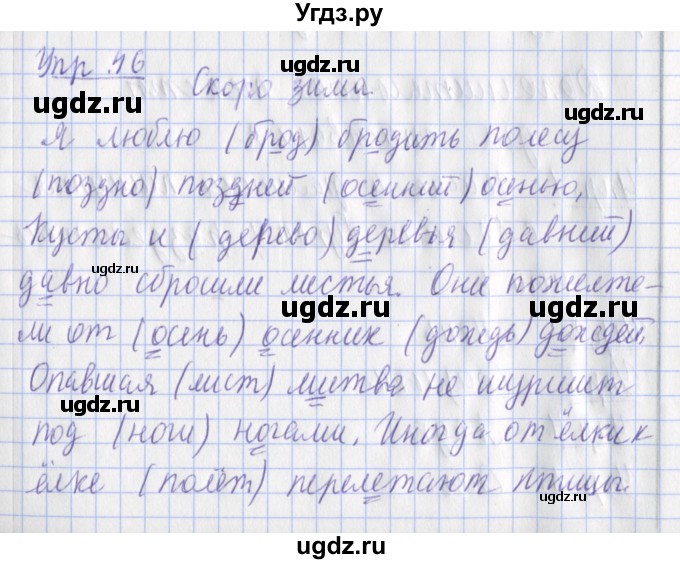 Угдз.ру
Упр. 46
Скоро зима.
Я люблю (брод) бродить полесу
(поздно) поздней (осенний) осенью.
Кусты и (дерево) деревья (давний)
давно сбросили листья. Они пожелте-
ли от (осень) осенних (дождь) дождей.
Опавшая (лист) листва не шуршит
под (ноги) ногами. Иногда от ёлки к
ёлке (полёт) перелетают птицы.
ugdz.ru
ugdz.ru
ugdz.ru
ugdz.ru
ugdz.ru
ugdz.ru
ugdz.ru
ugdz.ru
ugdz.ru
ugdz.ru
ugdz.ru
ugdz.ru
ugdz.ru